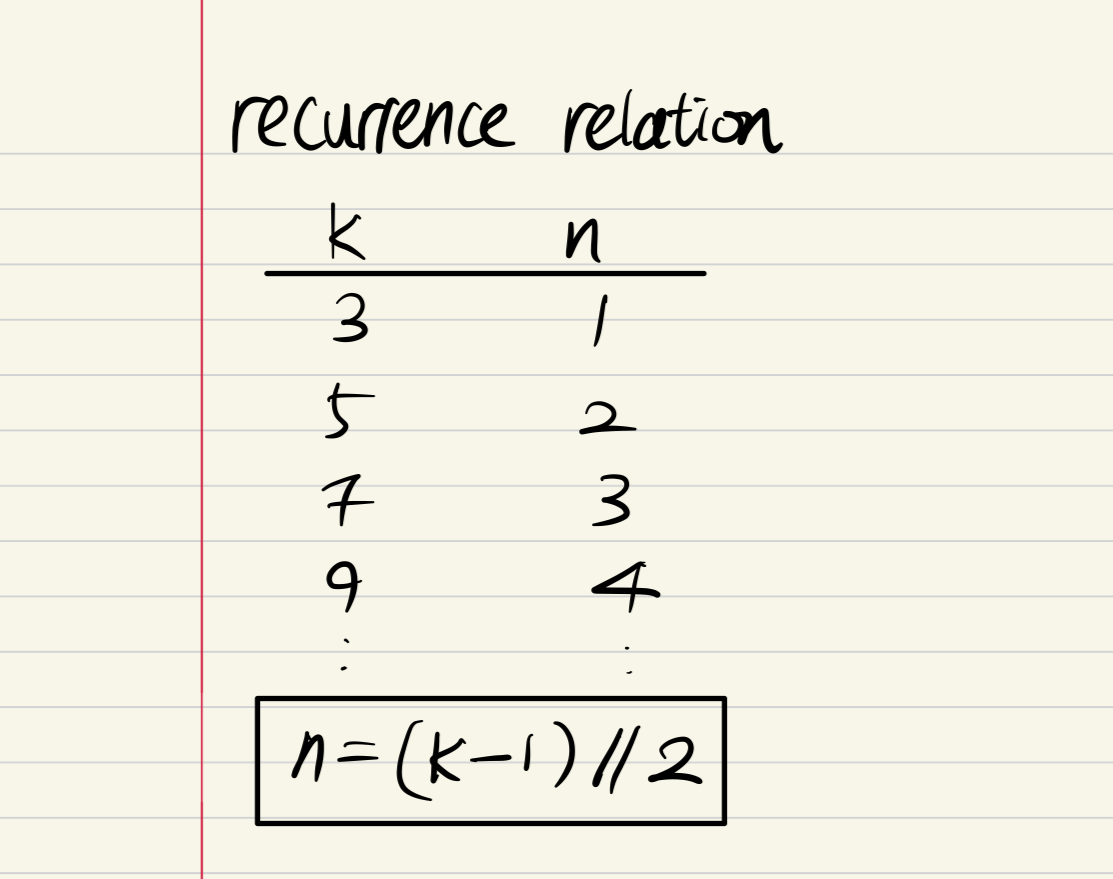 recurrence relation
k n
3 1
5 2
7 3
9 4
: :
n=(k-1)//2